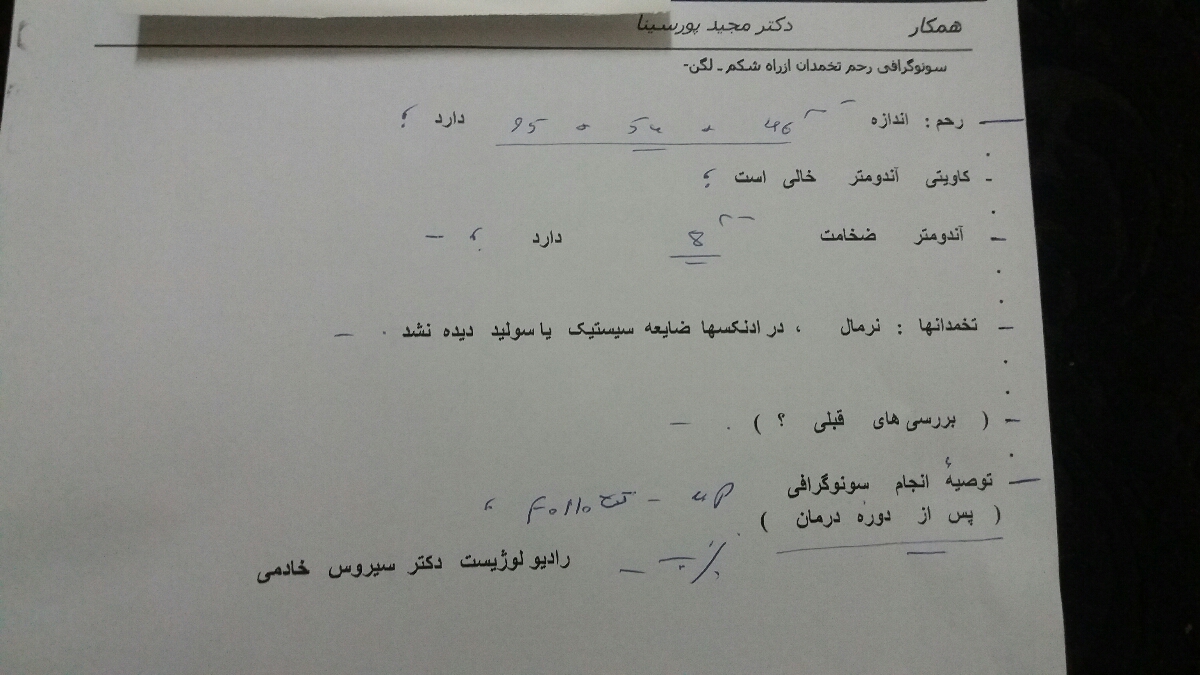 همکار دکتر مجید پورسینا
سونوگرافی رحم تخمدان ازراه شکم ـ لگن-
— رحم : اندازه 95 * 54 * 46 mm دارد ؟
- کاویتی آندومتر خالی است ؟
— آندومتر ضخامت 8 mm دارد ؟ —
— تخمدانها : نرمال ، در ادنکسها ضایعه سیستیک یا سولید دیده نشد . —
— ( بررسی های قبلی ؟ ) . —
— توصیهٔ انجام سونوگرافی Follow - up
( پس از دوره درمان ) .
رادیولوژیست دکتر سیروس خادمی